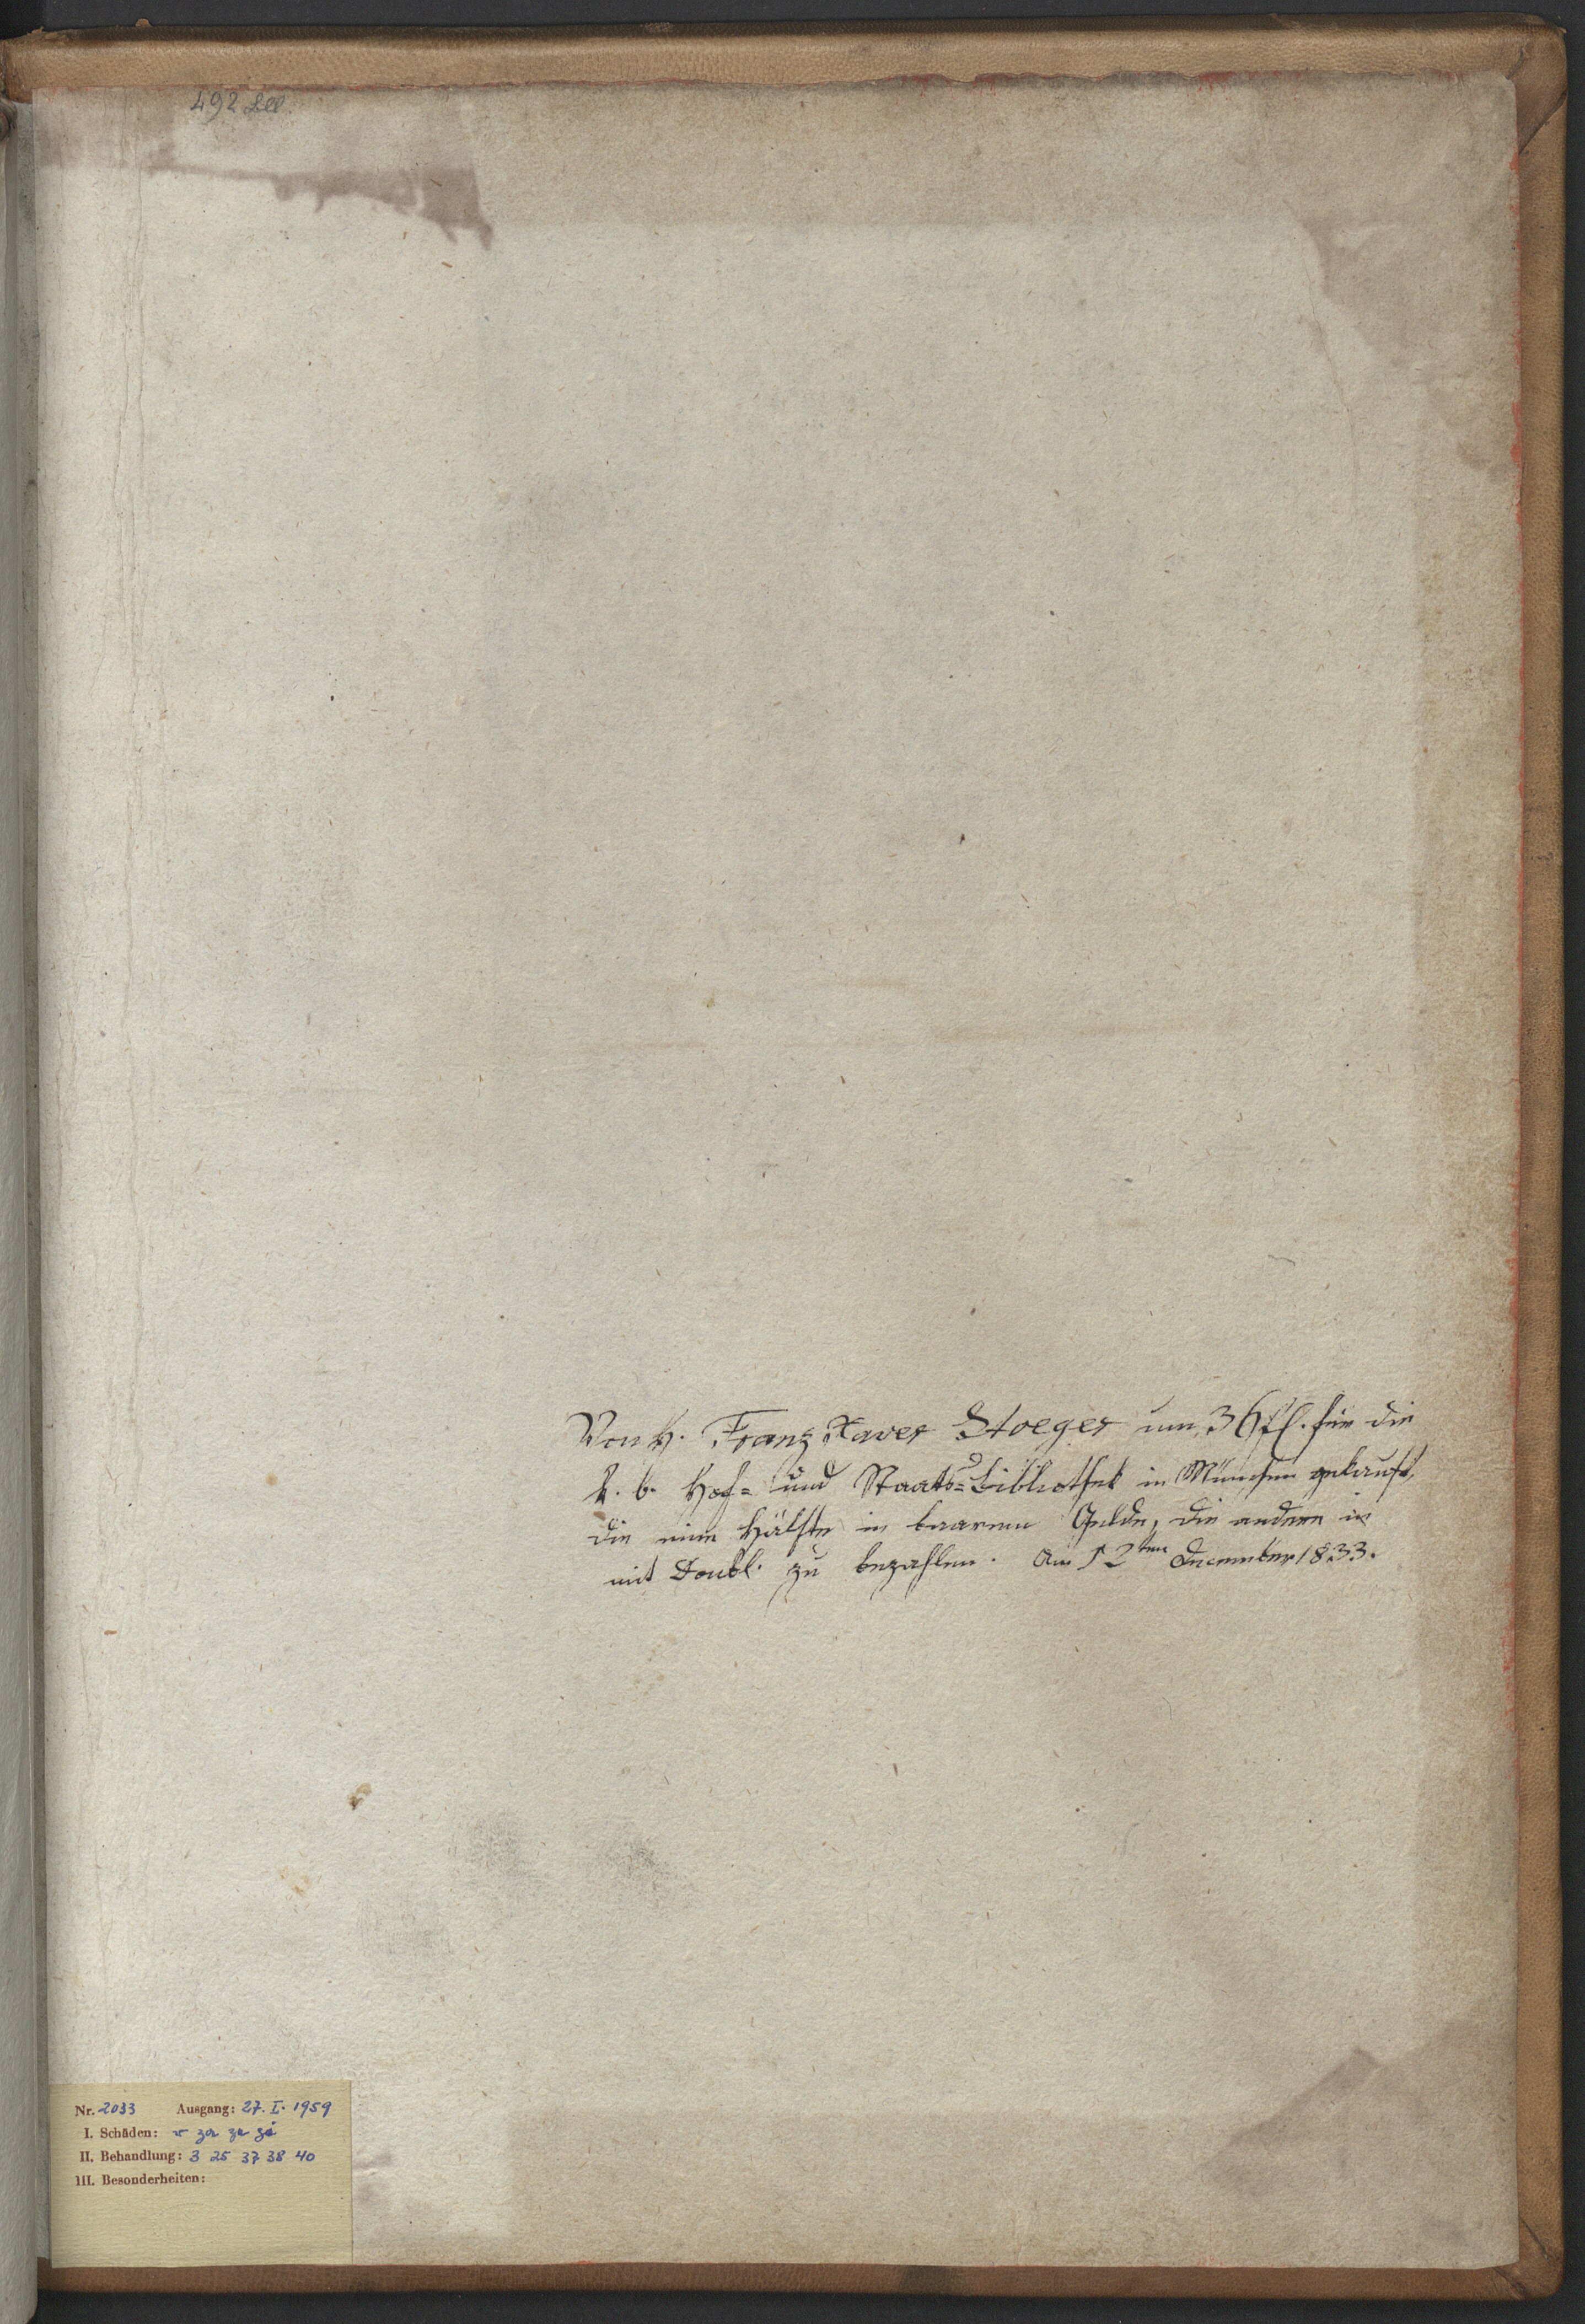 492
Von H. Franz Xaver Stoeger um 36 fl. für die
k. b. Hof= und Staats=Bibliothek in München gekauft,
die eine Hälfte in baarem Gelde, die andere in
mit Doubl. zu bezahlen. Am 12ten December 1833.
Nr. 2033 Ausgang: 27. I. 1959
I. Schäden:
II. Behandlung: 3 25 37 38 40
III. Besonderheiten: